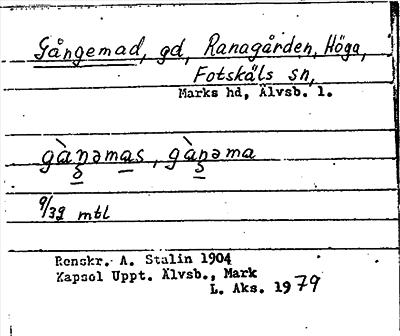 Gångemad, gd, Ranagården, Höga,
Fotskäls sn,
Marks hd, Älvsb. l.
gàn̥əmas, gàn̥əma
9/39 mtl
Renskr. A. Stalin 1904
Kapsol Uppt. Älvsb., Mark
L. Aks. 1979